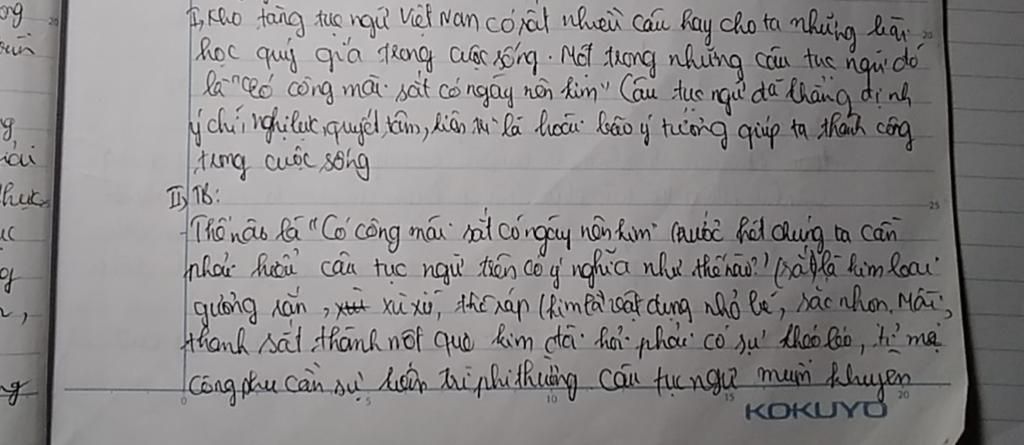 I, Kho tàng tục ngữ Việt Nam có rất nhiều câu hay cho ta những bài
học quý giá trong cuộc sống. Một trong những câu tục ngữ đó
là "Có công mài sắt có ngày nên kim" Câu tục ngữ đã khẳng định
ý chí, nghị lực, quyết tâm, kiên trì là hoài bão ý tưởng giúp ta thành công
trong cuộc sống
II, TB:
Thế nào là "Có công mài sắt có ngày nên kim" trước hết chúng ta cần
phải hiểu câu tục ngữ trên có ý nghĩa như thế nào? (sắt) là kim loại
cứng rắn, xù xì, thô ráp (kim là vật dụng nhỏ bé, sắc nhọn. Mài
thanh sắt thành một que kim đòi hỏi phải có sự khéo léo, tỉ mỉ
công phu cần sự kiên trì phi thường câu tục ngữ muốn khuyên
ong
g,
hực
ục
g
ng
KOKUYO
20
25
0
5
10
15
20